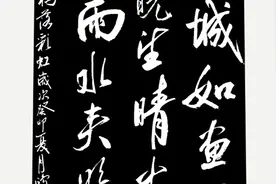 城如画
晚望晴
两水夹
落彩虹歲次癸卯夏月